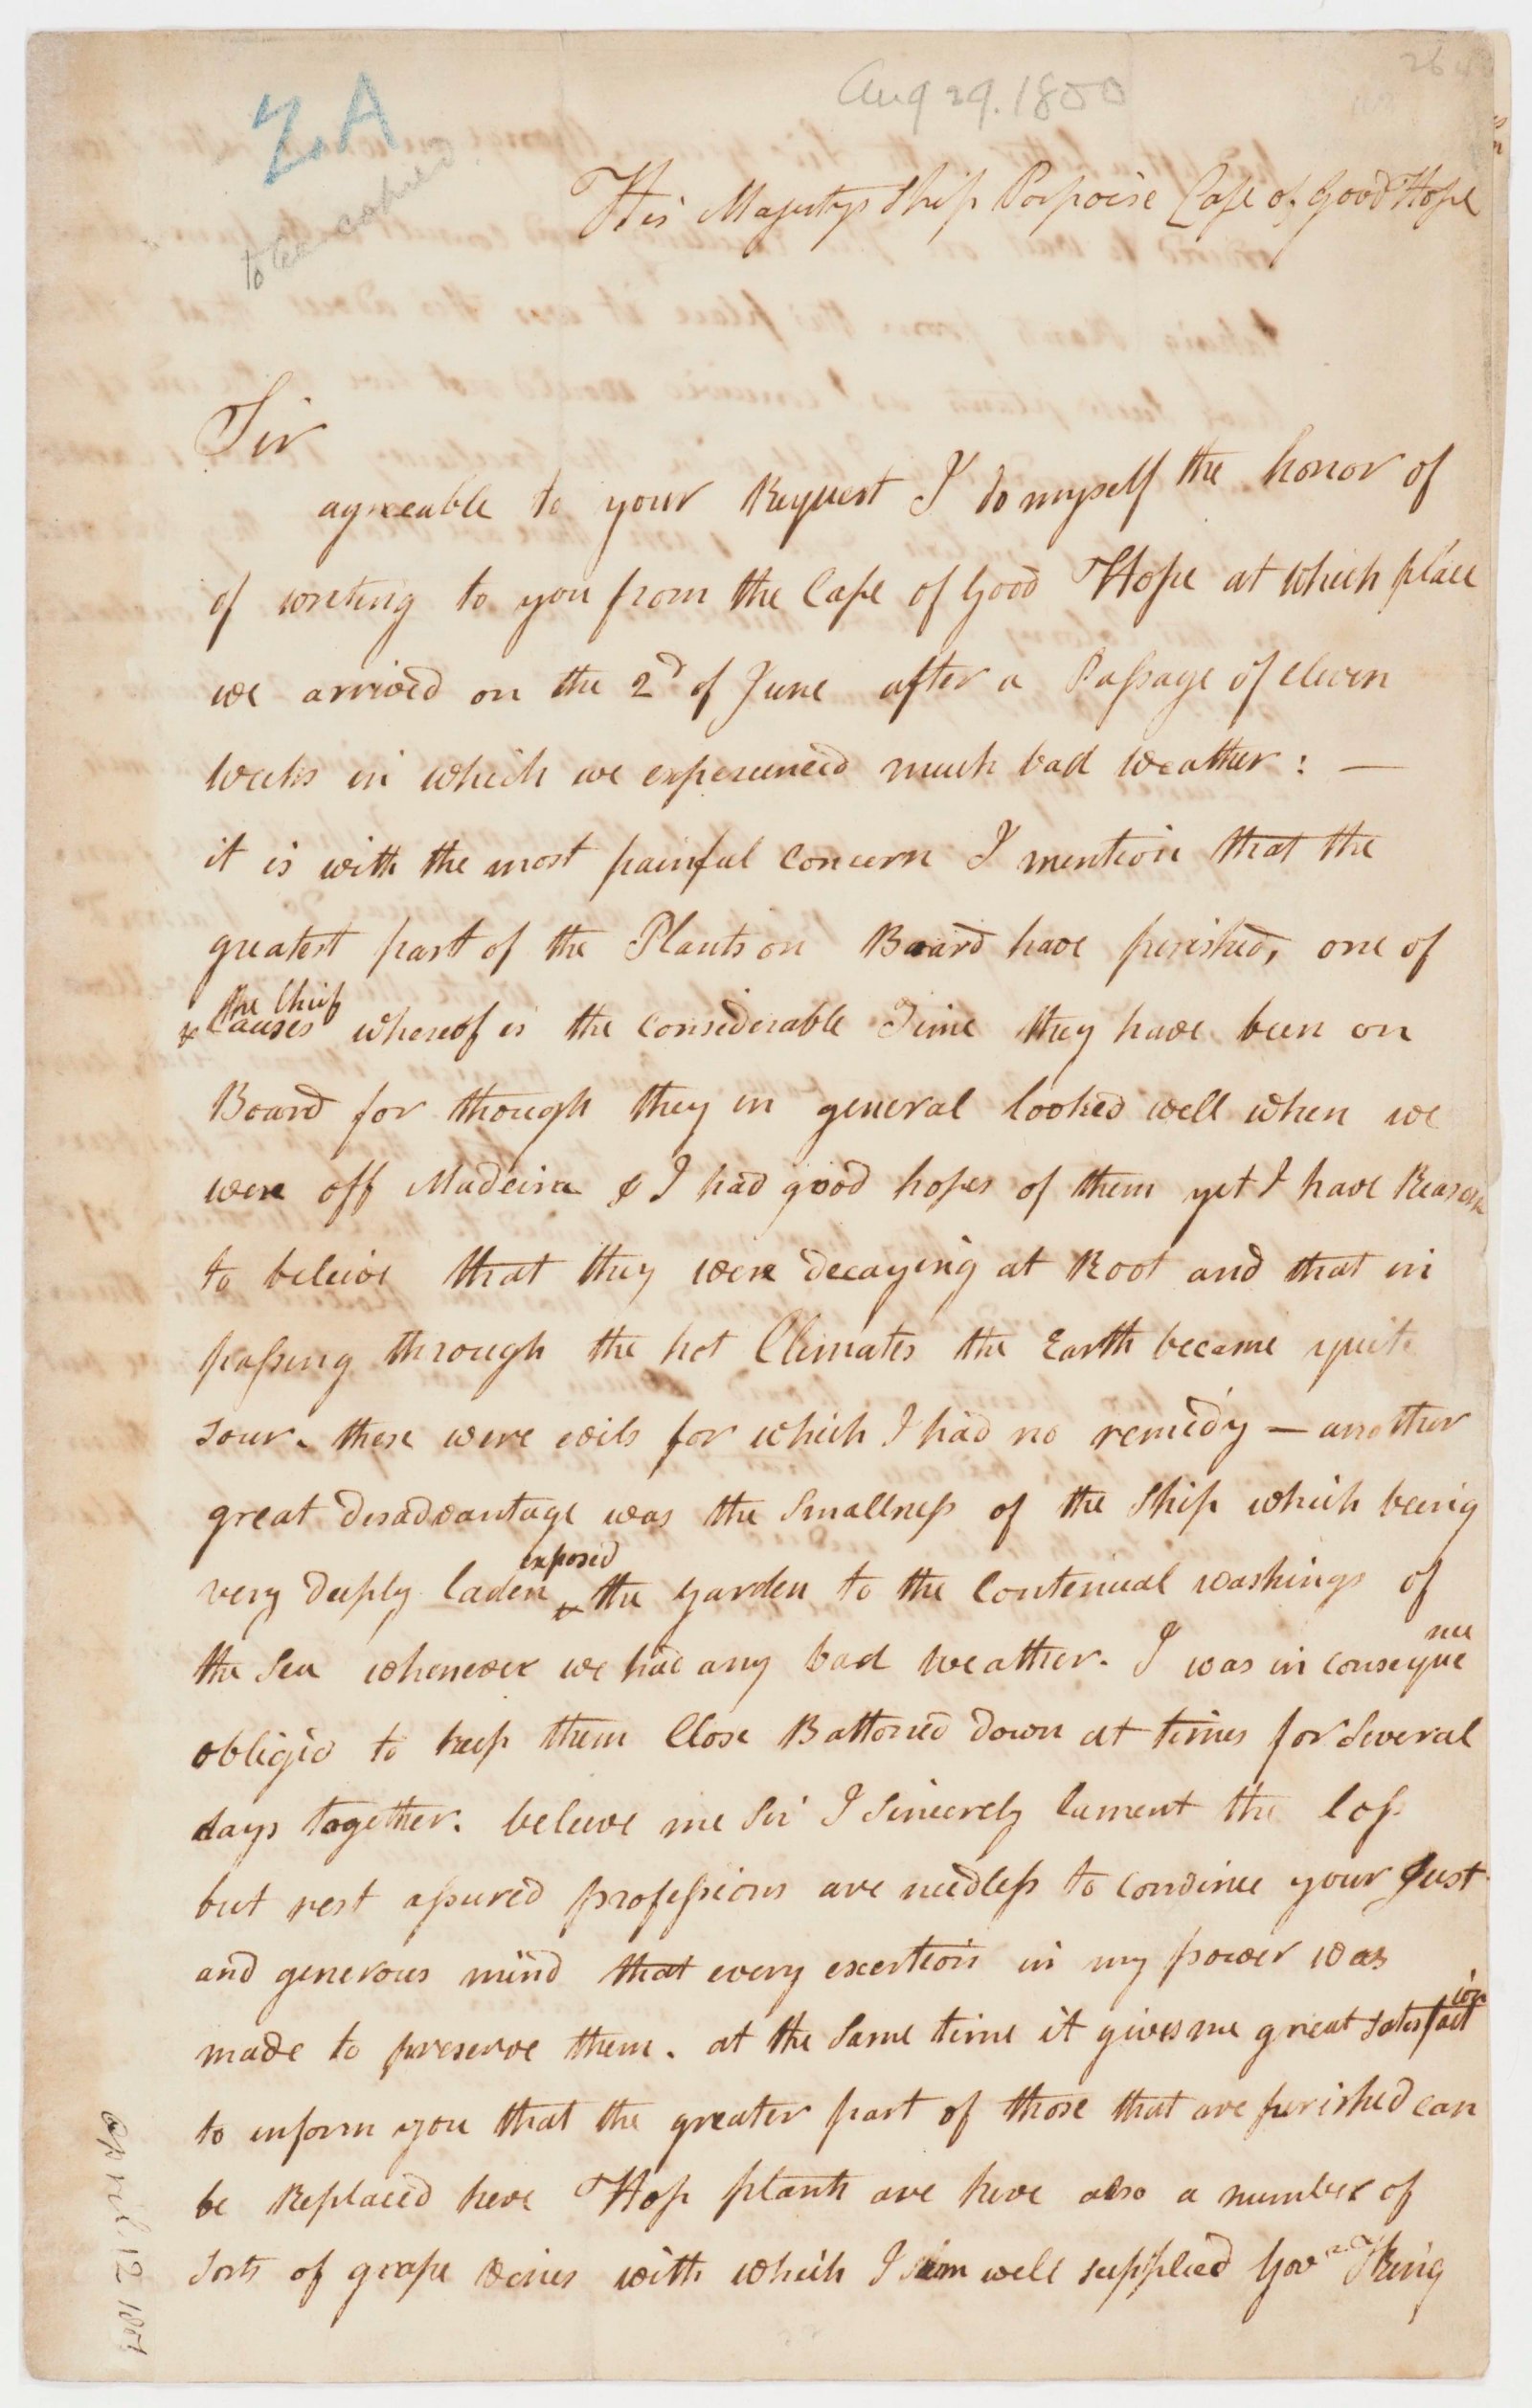 Aug 29. 1800
Z.A
to be copied
His Majestys Ship Porpoise Cape of Good Hope
Sir
agreeable to your Request I do myself the honor of
of writing to you from the Cape of Good Hope at which place
we arrived on the 2d of June after a Passage of eleven
weeks in which we experienced much bad weather: —
it is with the most painful Concern I mention that the
greatest part of the Plants on Board have perished, one of
the Chief
x Causes whereof is the Considerable Time they have been on
Board for though they in general looked well when we
were off Madeira & I had good hopes of them yet I have Reason
to beleive that they were decaying at Root and that in
passing through the hot Climates the Earth became quite
sour. these were evils for which I had no remedy — another
great disadvantage was the Smallness of the Ship which being
exposed
very deeply laden x the Garden to the Contenual washings of
the Sea whenever we had any bad weather. I was in conseque
nce
obliged to keep them Close Battoned down at times for Several
days together. beleeve me Sir I Sincerely lament the loss
but rest assured professions are needless to convince your Just
and generous mind that every exertion in my power was
made to preserve them. at the Same time it gives me great satisfact
ion
to inform you that the greater part of those that are perished can
be Replaced here Hop plants are here also a number of
Sorts of grape vines with which I am well supplied Govnr King
April 12 180